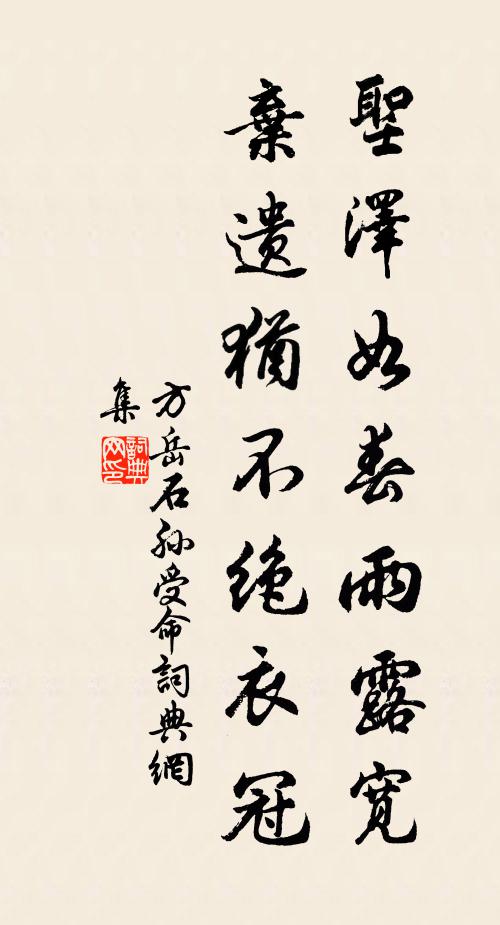 聖澤如春雨露寬
棄遺猶不絕衣冠
方岳石孫受命詞典網
集
詞典網印